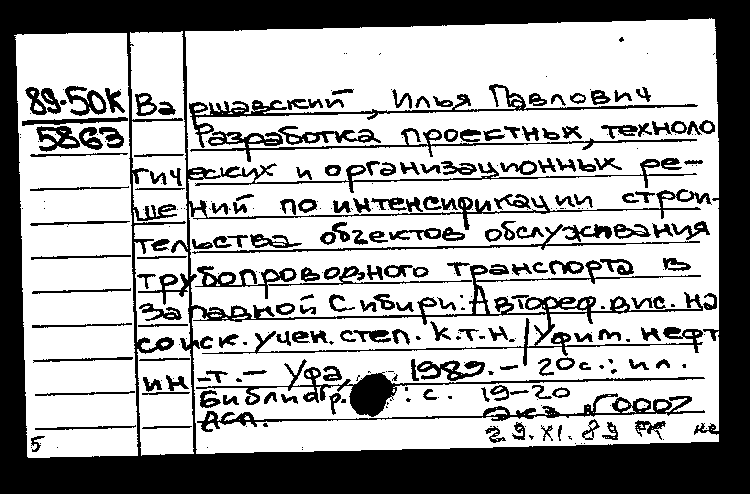 89-50К
5863
Варшавский, Илья Павлович
Разработка проектных, техноло
гических и организационных ре-
шений по интенсификации строи-
тельства объектов обслуживания
трубопроводного транспорта в
Западной Сибири: Автореф. дис. на
соиск. учен. степ. к.т.н. / Уфим. нефт
ин-т. - Уфа, 1989. - 20с.: ил.
Библиогр.: с. 19-20
Экз. N 0007
29.XI.89 не
5